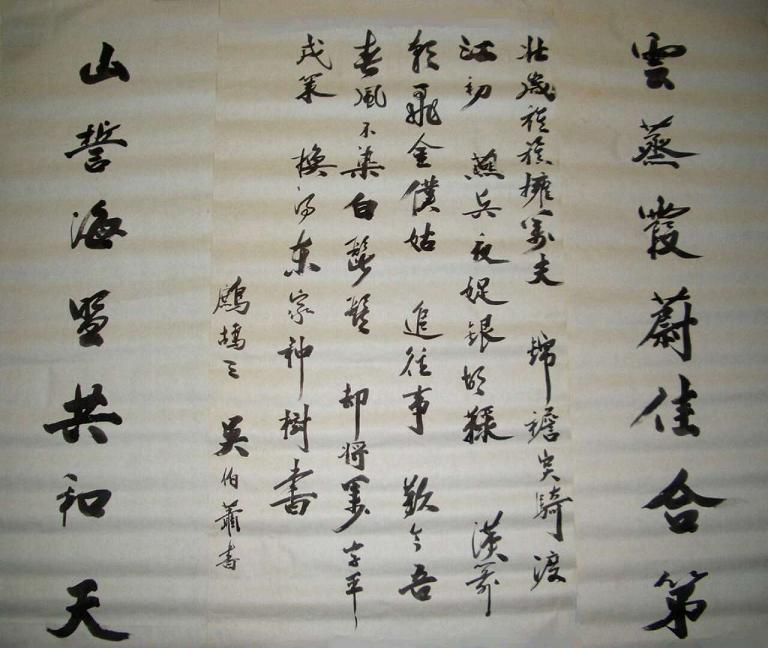 雲蒸霞蔚佳合第
壯歲旌旗擁萬夫 錦襜突騎渡
江初 燕兵夜娖銀胡䩮 漢箭
朝飛金僕姑 追往事 歎今吾
春風不染白髭鬚 却將萬字平
戎策 換得东家神樹書
鷓鴣三 吳伯蕭書
山誓海盟共和天